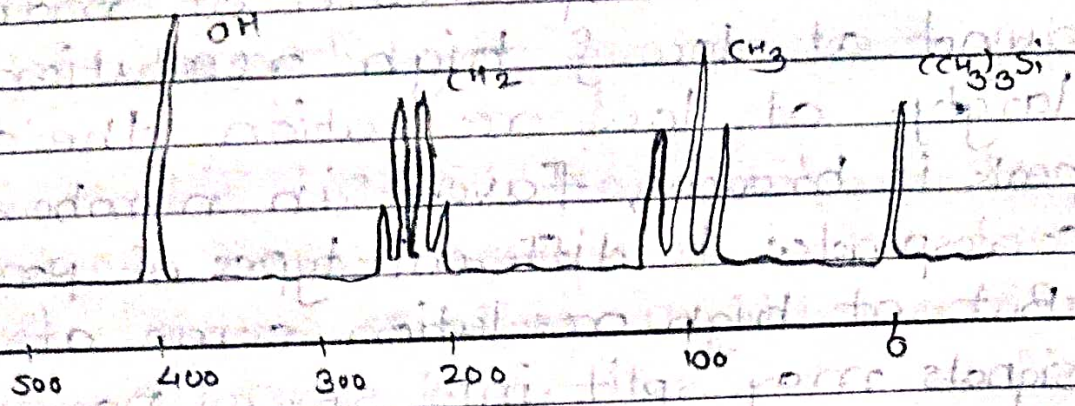 OH
CH2
CH3
((CH3)3Si
500 400 300 200 100 0